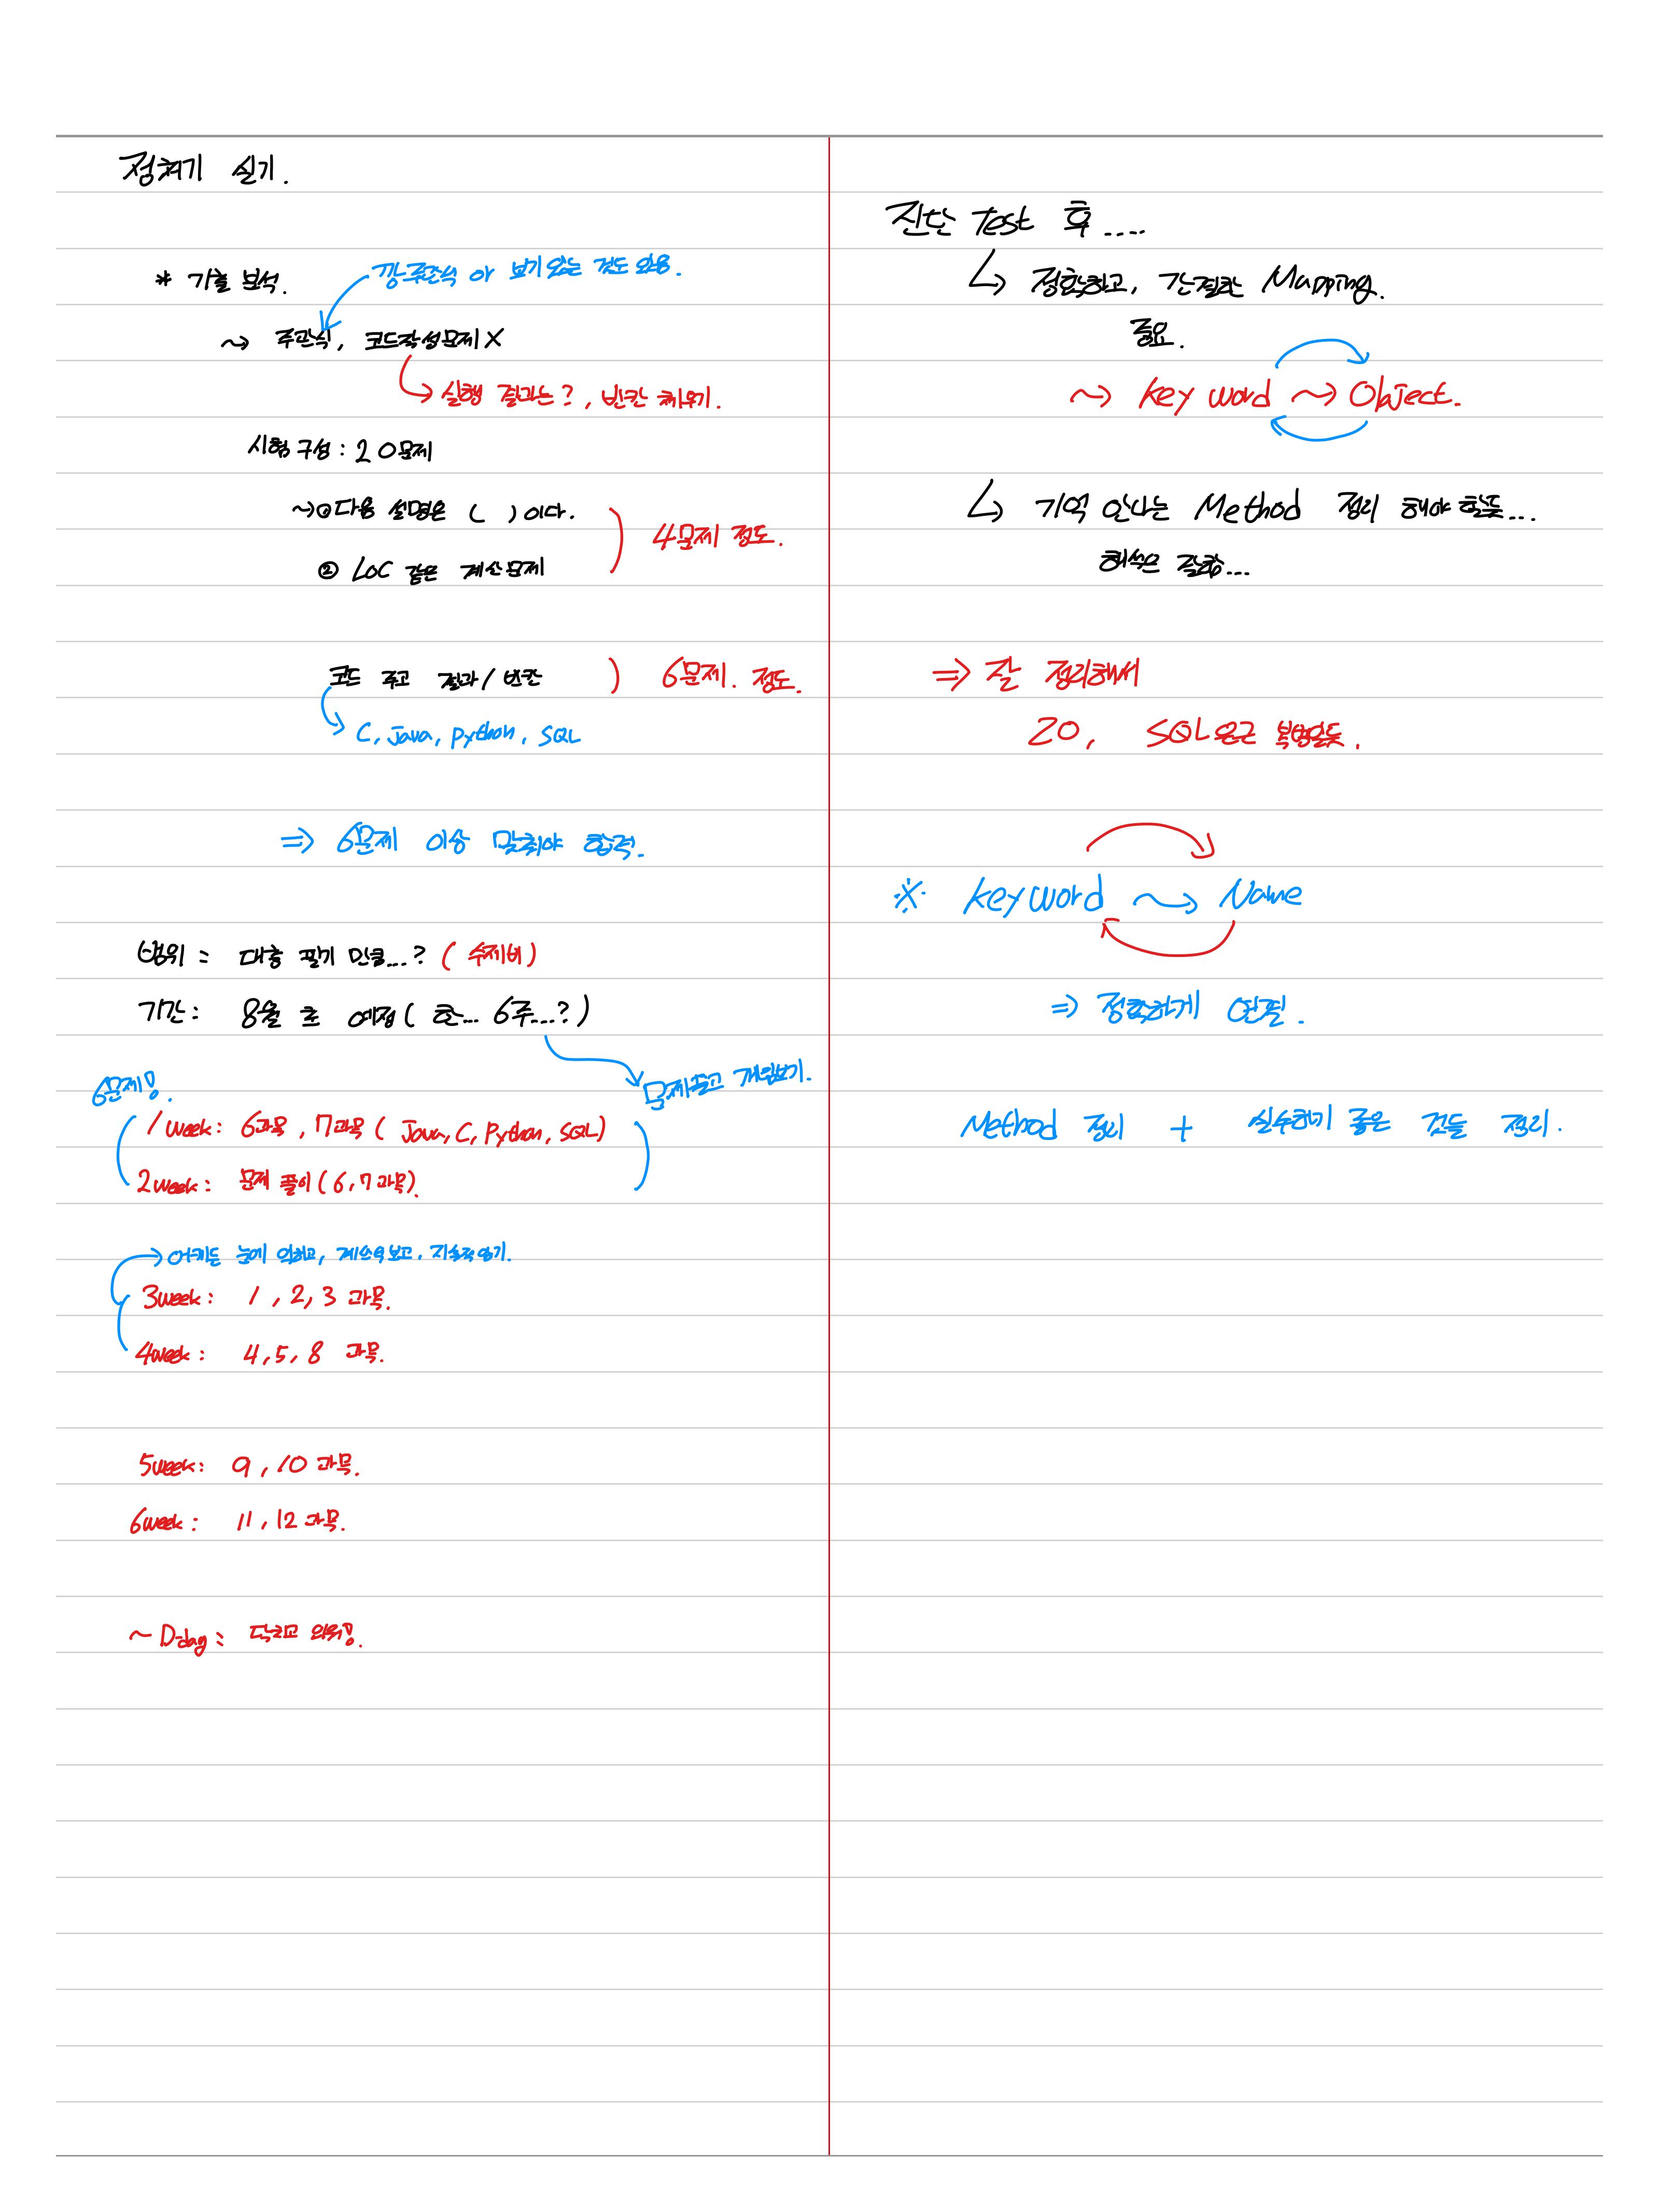 정처기 실기.
* 기출 분석.
깡주관식 아 보기 있는 것도 있음.
~> 주관식, 코드작성문제 X
실행 결과는?, 빈칸 채우기.
시험 구성 : 20문제
~> ① 다음 설명은 ( ) 이다.
② LOC 같은 계산문제
4문제 정도.
코드 주고 결과 / 빈칸 ) 6문제. 정도.
C, Java, Python, SQL
⇒ 6문제 이상 맞춰야 합격.
범위 : 대충 필기 만큼...? ( 수제비 )
기간 : 8월 초 예정 ( 한... 6주...? )
문제풀고 개념보기.
6문제!.
1week : 6과목, 7과목 ( Java, C, Python, SQL )
2week : 문제 풀이 ( 6, 7 과목 ).
눈에 익히고, 계속 보고,
3week : 1, 2, 3 과목.
4week : 4, 5, 8 과목.
5week : 9, 10 과목.
6week : 11, 12 과목.
~ D-day : 닥치고 외워!.
진단 Test 후 ....
↳ 정확하고, 간결한 Mapping.
중요.
~> key word ~> Object.
↳ 기억 안나는 Method 정리 해야 할듯...
해석은 잘함...
⇒ 잘 정리해서
20, SQL은근 복병일듯.
※ keyword ~> Name
⇒ 정확하게 연결.
Method 정리 + 실수하기 좋은 것들 정리.